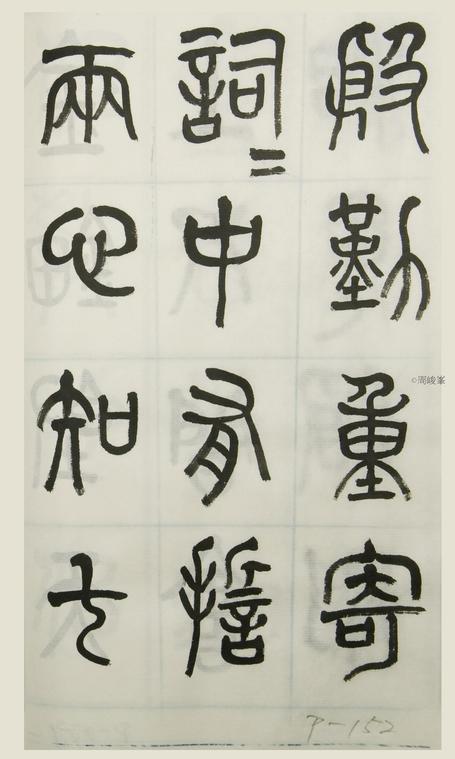 殷勤重寄
詞〻中有誓
兩心知七
P-152
©周峻峯